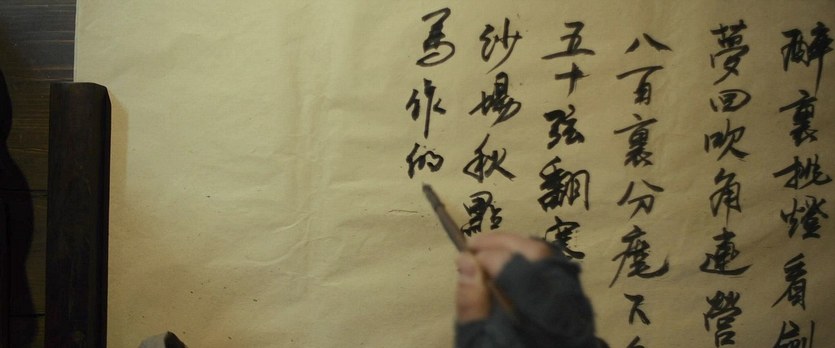 醉裏挑燈看劍
夢回吹角連營
八百裏分麾下
五十弦翻塞
沙場秋點
馬作的